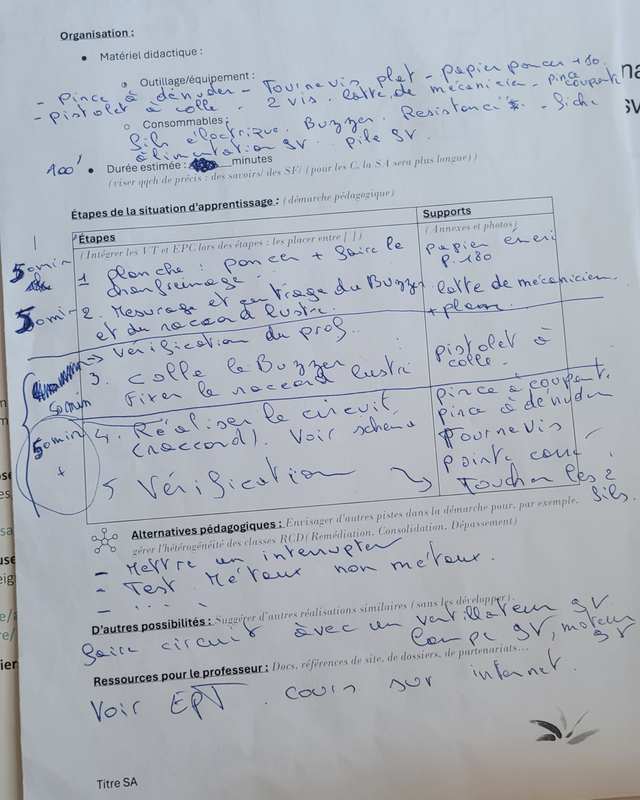 Organisation :
• Matériel didactique :
o Outillage/équipement :
- Pince à dénuder - Tournevis plat - papier poncer 180
- Pistolet à colle. 2 vis. latte de mécanicien. pince coupante
o Consommables :
Fils électrique. Buzzer. Resistance. - fiche
alimentation 9V. pile 9V.
100' • Durée estimée : minutes
(viser qqch de précis : des savoirs/ des SF/ (pour les C, la SA sera plus longue))
Étapes de la situation d'apprentissage : (démarche pédagogique)
Étapes
Supports
(Intégrer les VT et EPC lors des étapes : les placer entre [ ])
(Annexes et photos)
50min 1 planche : poncer + faire le
chanfreinage
papier émeri
p. 180
50min 2. Mesurage et centrage du Buzzer
et du raccord lustre.
latte de mécanicien
+ plan
→ Vérification du prof.
50min 3. Colle le Buzzer
Fixer le raccord lustri
pistolet à
colle.
50min + 4. Réaliser le circuit
(raccord). Voir schema
pince à coupant.
pince à dénuder
Tournevis
5 Vérification
pointe
Toucher les 2
fils.
Alternatives pédagogiques : Envisager d'autres pistes dans la démarche pour, par exemple,
gérer l'hétérogénéité des classes RCD( Remédiation, Consolidation, Dépassement)
- Mettre un interrupter
- Test Métaux non métaux.
- ....
D'autres possibilités : Suggérer d'autres réalisations similaires (sans les développer).
faire circuit avec un ventilateur 9V
lampe 9V, moteur
9V
Ressources pour le professeur : Docs, références de site, de dossiers, de partenariats...
Voir EPT. cours sur internet.
Titre SA